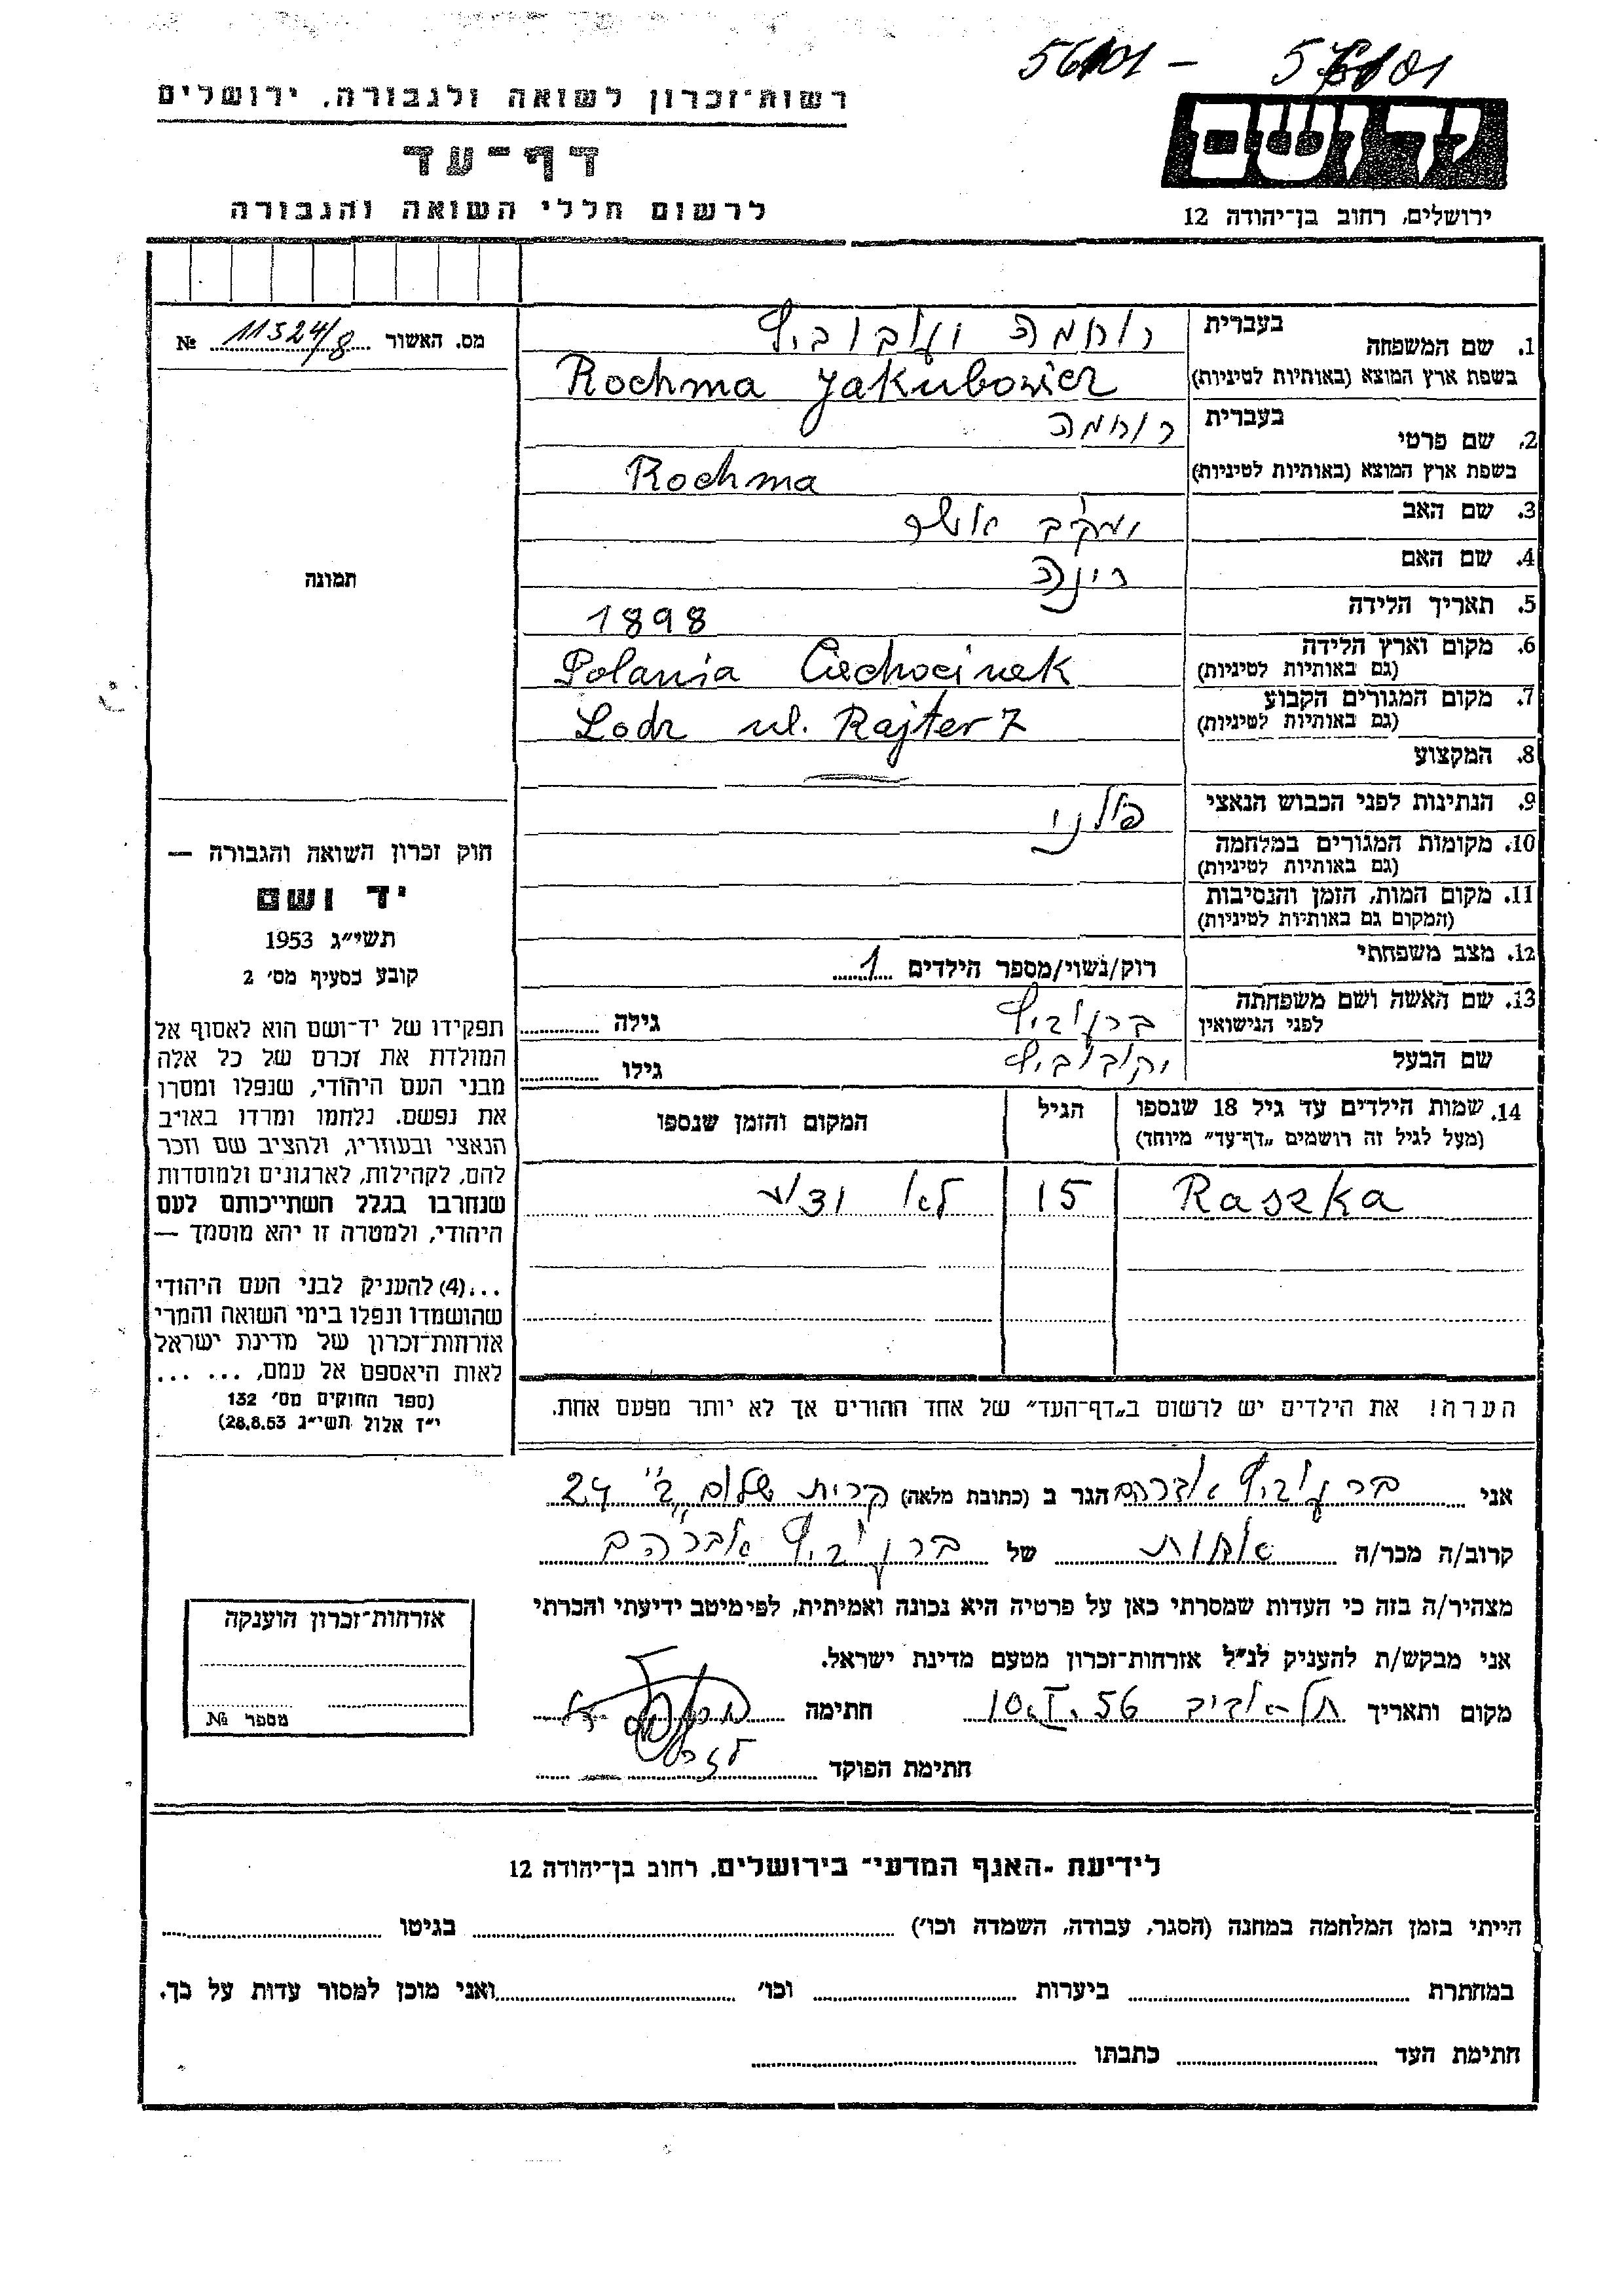 56101 - 56101
רשות־זכרון לשואה ולגבורה, ירושלים
דף־עד
לרשום חללי השואה והגבורה
יד ושם
ירושלים, רחוב בן־יהודה 12
מס. האשור 11324/8 №
תמונה
חוק זכרון השואה והגבורה —
יד ושם
תשי״ג 1953
קובע בסעיף מס׳ 2
תפקידו של יד־ושם הוא לאסוף אל
המולדת את זכרם של כל אלה
מבני העם היהודי, שנפלו ומסרו
את נפשם, נלחמו ומרדו באויב
הנאצי ובעוזריו, ולהציב שם וזכר
להם, לקהילות, לארגונים ולמוסדות
שנחרבו בגלל השתייכותם לעם
היהודי, ולמטרה זו יהא מוסמך —
...(4) להעניק לבני העם היהודי
שהושמדו ונפלו בימי השואה והמרי
אזרחות־זכרון של מדינת ישראל
לאות היאספם אל עמם, ... ...
(ספר החוקים מס׳ 132
י״ז אלול תשי״ג 28.8.53)
1. שם המשפחה בעברית רוחמה
בשפת ארץ המוצא (באותיות לטיניות) Rochma Jakubowicz
2. שם פרטי בעברית רוחמה
בשפת ארץ המוצא (באותיות לטיניות) Rochma
3. שם האב יעקב אושר
4. שם האם רינה
5. תאריך הלידה 1898
6. מקום וארץ הלידה
(גם באותיות לטיניות) Polania Ciechocinek
7. מקום המגורים הקבוע
(גם באותיות לטיניות) Lodz ul. Rajter 7
8. המקצוע
9. הנתינות לפני הכבוש הנאצי פולני
10. מקומות המגורים במלחמה
(גם באותיות לטיניות)
11. מקום המות, הזמן והנסיבות
(המקום גם באותיות לטיניות)
12. מצב משפחתי רווק/נשוי/מספר הילדים 1
13. שם האשה ושם משפחתה
לפני הנישואין גילה
שם הבעל יקובוביץ גילו
14. שמות הילדים עד גיל 18 שנספו הגיל המקום והזמן שנספו
(מעל לגיל זה רושמים „דף־עד״ מיוחד)
Raszka 15 לא ידוע
הערה! את הילדים יש לרשום ב„דף־העד״ של אחד ההורים אך לא יותר מפעם אחת.
אני אברהם הגר ב (כתובת מלאה) קרית שלום ב״ 24
קרוב/ה מכר/ה אחות של אברהם
מצהיר/ה בזה כי העדות שמסרתי כאן על פרטיה היא נכונה ואמיתית, לפי מיטב ידיעתי והכרתי
אני מבקש/ת להעניק לנ״ל אזרחות־זכרון מטעם מדינת ישראל.
מקום ותאריך תל־אביב 10.I.56 חתימה
חתימת הפוקד
אזרחות־זכרון הוענקה
מספר №
לידיעת ״האגף המדעי״ בירושלים, רחוב בן־יהודה 12
הייתי בזמן המלחמה במחנה (הסגר, עבודה, השמדה וכו׳) בגיטו
במחתרת ביערות וכו׳ ואני מוכן למסור עדות על כך.
חתימת העד כתבתו